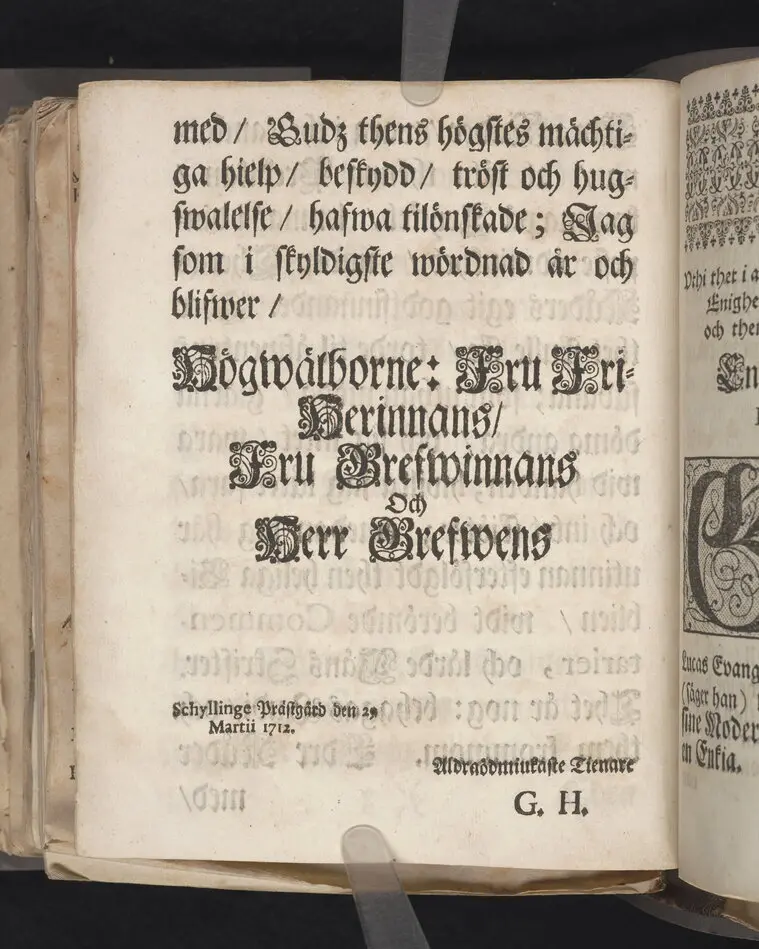 med/ Gudz thens högstes mächti-
ga hielp/ beskydd/ tröst och hug-
swalelse/ hafwa tilönskade; Jag
som i skyldigste wördnad är och
blifwer/
Högwälborne: Fru Fri-
Herinnans/
Fru Grefwinnans
Och
Herr Grefwens
Schyllinge Prästgård den 29
Martii 1712.
Aldraödmiukaste Tienare
G. H.
thet i a
Enighe
och the
En
Lucas Evang
(säger han)
sine Moder
en Enkia.